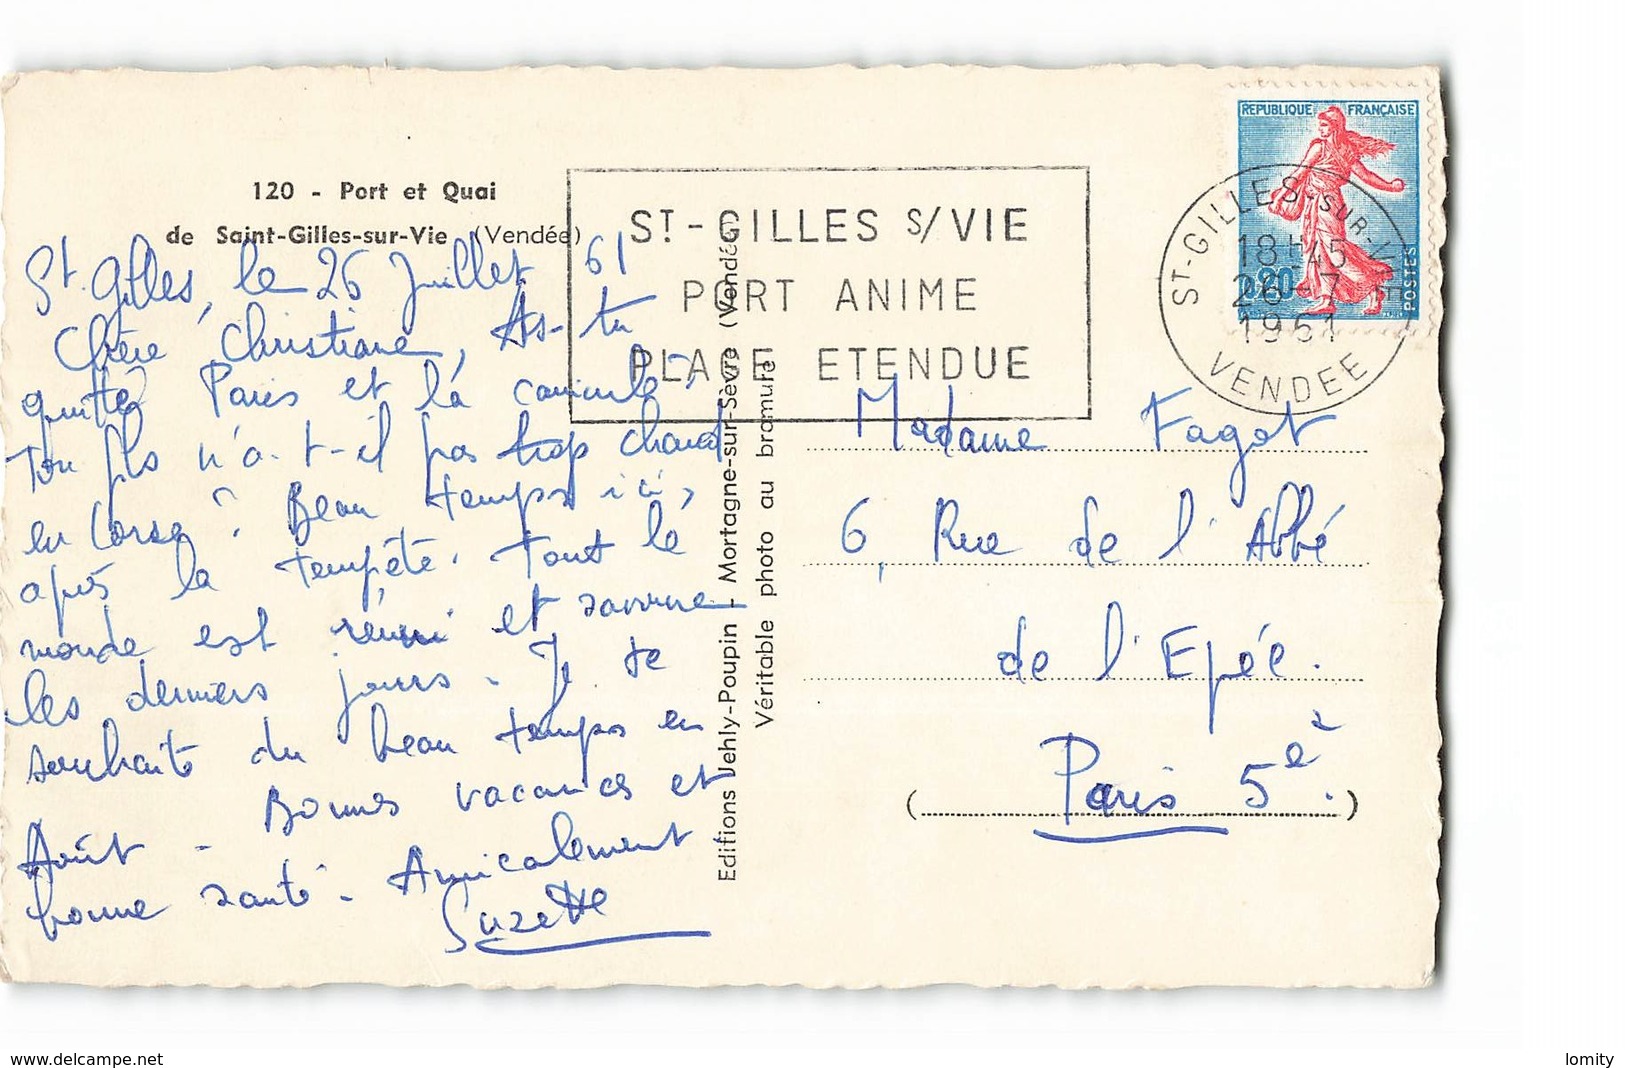 120 - Port et Quai
de Saint-Gilles-sur-Vie (Vendée)
St. Gilles, le 26 Juillet 61
Chère Christiane, As-tu
quitté Paris et la canicule,
Ton fils n'a-t-il pas trop chaud
en Corse ? Beau temps ici,
après la tempête. Tout le
monde est réuni et savoure
les derniers jours. Je te
souhaite du beau temps en
Août - Bonnes vacances et
bonne santé - Amicalement
Suzette
Editions Jehly-Poupin - Mortagne-sur-Sèvre (Vendée)
Véritable photo au bromure
ST-GILLES S/VIE
PORT ANIME
PLAGE ETENDUE
REPUBLIQUE FRANÇAISE
0,20
POSTES
ST-GILLES-SUR-VIE
18H45
26-7
1961
VENDEE
Madame Fagot
6, Rue de l'Abbé
de l'Epée.
(Paris 5e.)
www.delcampe.net
lomity